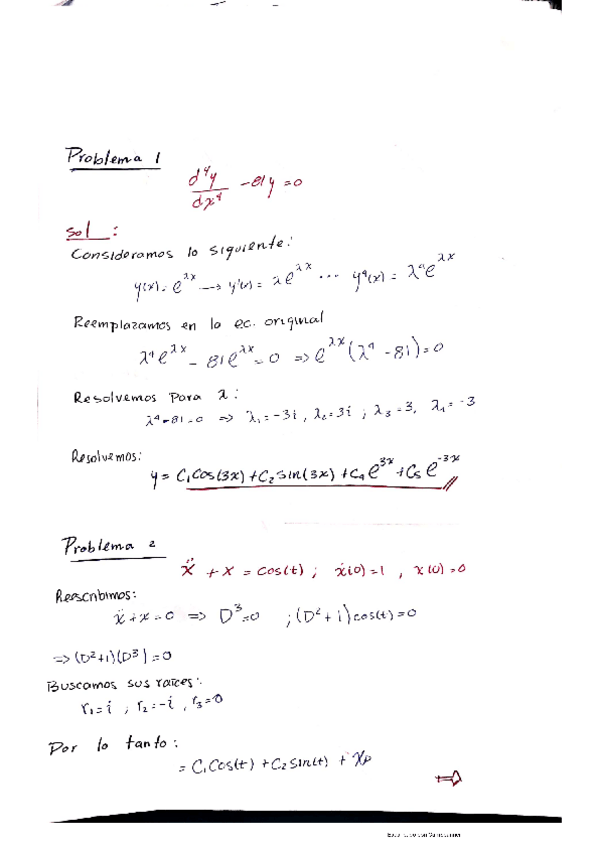 Problema 1
d⁴y/dx⁴ - 81y = 0
Sol:
Consideramos lo siguiente:
y(x) = e^{λx} → y'(x) = λe^{λx} ... y⁴(x) = λ⁴e^{λx}
Reemplazamos en la ec. original
λ⁴e^{λx} - 81e^{λx} = 0 ⇒ e^{λx}(λ⁴ - 81) = 0
Resolvemos para λ:
λ⁴ - 81 = 0 ⇒ λ₁ = -3i, λ₂ = 3i; λ₃ = 3, λ₄ = -3
Resolvemos:
y = C₁Cos(3x) + C₂Sin(3x) + C₄e^{3x} + C₅e^{-3x}
Problema 2
ẍ + x = cos(t); ẋ(0) = 1, x(0) = 0
Reescribimos:
ẍ + x = 0 ⇒ D³ = 0 ; (D² + 1)cos(t) = 0
⇒ (D²+1)(D³) = 0
Buscamos sus raíces:
r₁ = i ; r₂ = -i, r₃ = 0
Por lo tanto:
= C₁Cos(t) + C₂Sin(t) + Xp
⇒